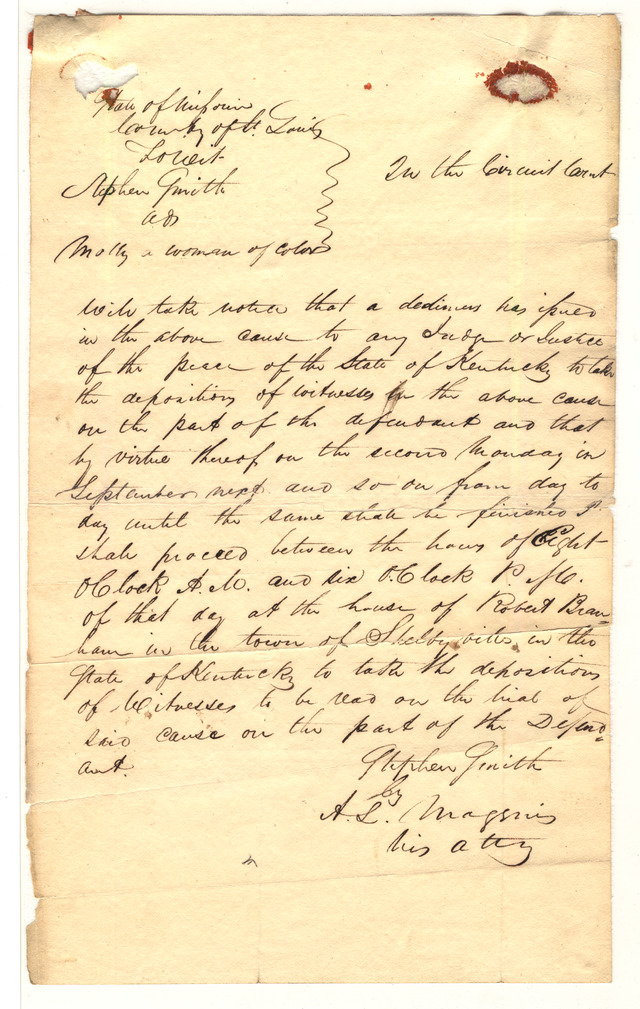 State of Missouri
County of St. Louis
To wit
Stephen Smith
ads
Molly a woman of color
In the Circuit Court
Will take notice that a dedimus has issued
in the above cause to any Judge or Justice
of the peace of the State of Kentucky to take
the depositions of witnesses in the above cause
on the part of the defendant and that
by virtue thereof on the second Monday in
September next and so on from day to
day until the same shall be finished I
shall proceed between the hours of Eight
OClock A.M. and six O.Clock P.M.
of that day at the house of Robert Bran=
ham in the town of Shelbyville in the
State of Kentucky to take the depositions
of Witnesses to be read on the trial of
said cause on the part of the Defend=
ant.
Stephen Smith
by
A. L. Magenis
his atty